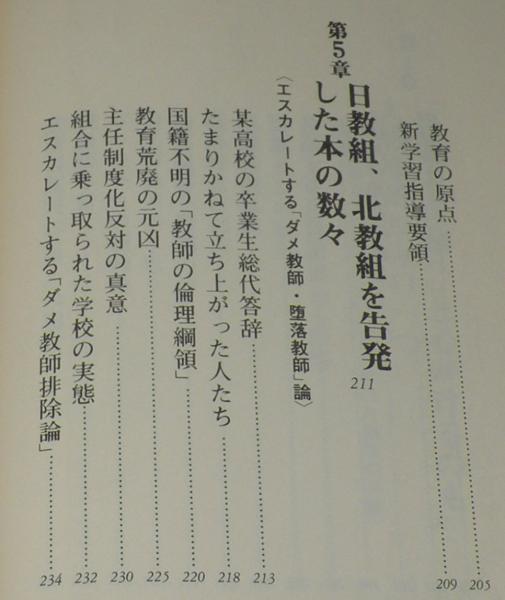 教育の原点 205
新学習指導要領 209
第5章 日教組、北教組を告発
した本の数々 211
〈エスカレートする「ダメ教師・堕落教師」論〉
某高校の卒業生総代答辞 213
たまりかねて立ち上がった人たち 218
国籍不明の「教師の倫理綱領」 220
教育荒廃の元凶 225
主任制度化反対の真意 230
組合に乗っ取られた学校の実態 232
エスカレートする「ダメ教師排除論」 234